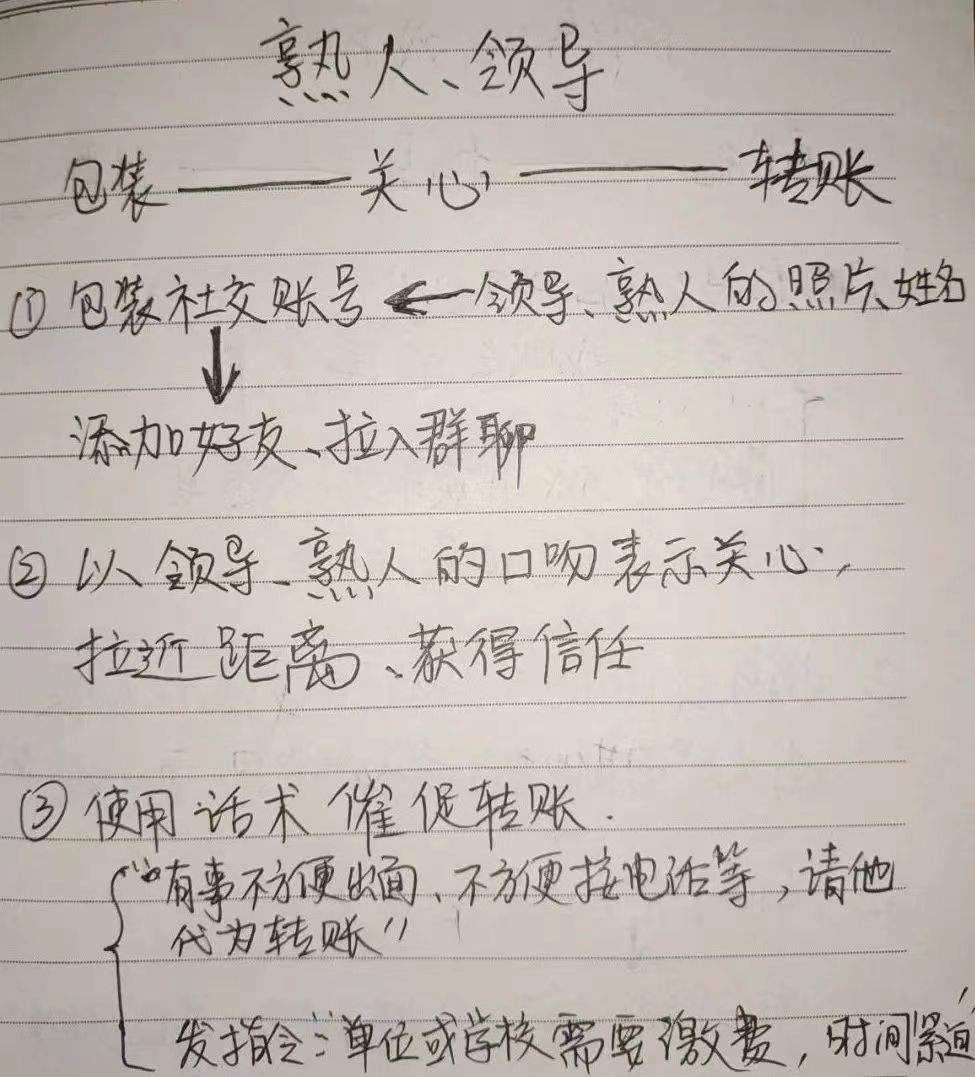 熟人、领导
包装——关心——转账
① 包装社交账号 ← 领导、熟人的照片、姓名
↓
添加好友、拉入群聊
② 以领导、熟人的口吻表示关心,
拉近距离、获得信任
③ 使用话术催促转账.
“有事不方便出面、不方便接电话等,请他
代为转账”
发指令:单位或学校需要缴费,时间紧迫